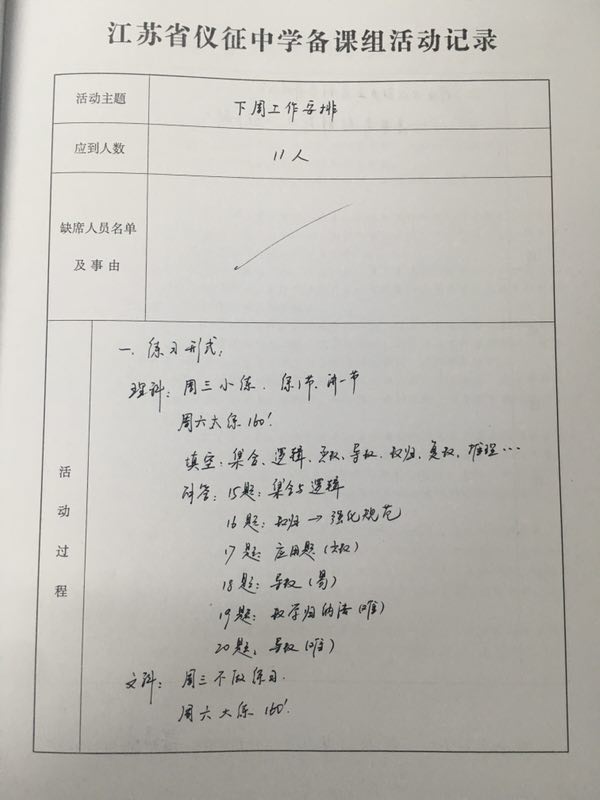 江苏省仪征中学备课组活动记录
活动主题
下周工作安排
应到人数
11人
缺席人员名单
及事由
活动过程
一、练习形式:
理科: 周三小练、练1节、讲一节
周六大练160'
填空: 集合、逻辑、函数、导数、数归、复数、推理…
解答: 15题: 集合与逻辑
16题: 数归 → 强化规范
17题: 应用题(函数)
18题: 导数(易)
19题: 数学归纳法(难)
20题: 导数(难)
文科: 周三不做练习.
周六大练160'.